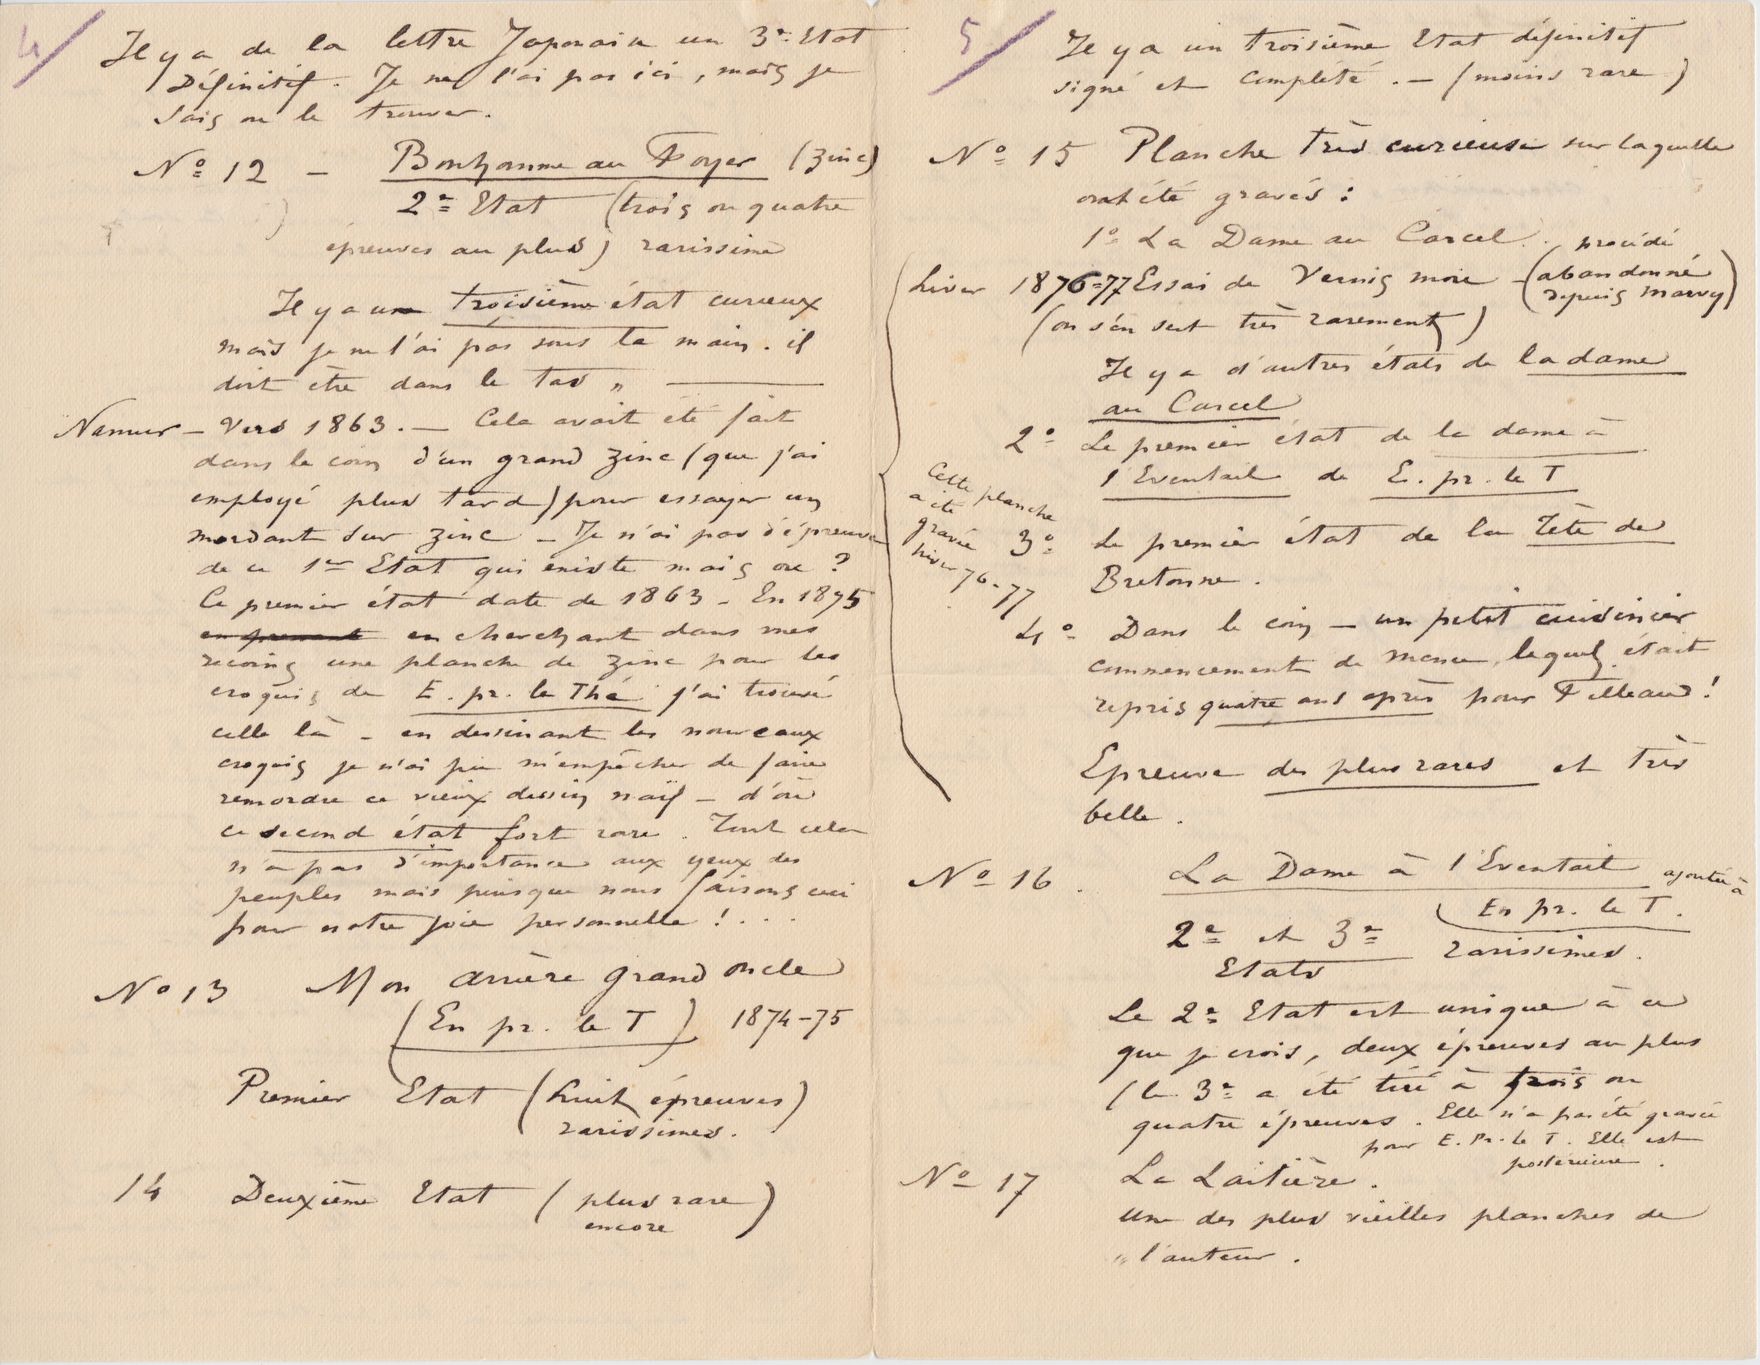 4/
Il y a de la lettre Japonaise un 3e Etat
Définitif. Je ne l'ai pas ici, mais je
sais ou le trouver.
No 12 – Bonhomme au Foyer (zinc)
2e Etat (trois ou quatre
épreuves au plus) rarissime
Il y a un troisième état curieux
mais je ne l'ai pas sous la main. il
doit être dans le tas „ ———
Namur – Vers 1863. — Cela avait été fait
dans le coin d'un grand zinc (que j'ai
employé plus tard) pour essayer un
mordant sur zinc – Je n'ai pas d'épreuve
de ce 1er Etat qui existe mais ou ?
Ce premier état date de 1863 – En 1875
en prenant en cherchant dans mes
recoins une planche de zinc pour les
croquis de E. pr. le Thé j'ai trouvé
celle là – en dessinant les nouveaux
croquis je n'ai pu m'empêcher de faire
remordre ce vieux dessin naïf – d'où
ce second état fort rare. Tout cela
n'a pas d'importance aux yeux des
peuples mais puisque nous faisons ceci
pour notre joie personnelle ! . . .
No 13 Mon arrière grand oncle
(En pr. le T) 1874-75
Premier Etat (huit épreuves)
rarissimes.
14 Deuxième Etat (plus rare
encore)
5/
Il y a un troisième Etat définitif
signé et complété. — (moins rare)
No 15 Planche très curieuse sur laquelle
ont été gravés :
1o La Dame au Carcel.
hiver 1876-77 Essai de Vernis mou – (procédé
abandonné
depuis Marvy)
(on s'en sert très rarement)
Il y a d'autres états de la dame
au Carcel
2o Le premier état de la dame à
l'Eventail de E. pr. le T
Cette planche
a été
gravée
hiver 76-77
3o Le premier état de la Tête de
Bretonne.
4o Dans le coin – un petit cuisinier
commencement de menu, lequel était
repris quatre ans après pour Filleau !
Epreuve des plus rares et très
belle.
No 16. La Dame à l'Eventail ajoutée à
En pr. le T.
2e et 3e rarissimes.
Etats
Le 2e Etat est unique à ce
que je crois, deux épreuves au plus
(le 3e a été tiré à trois ou
quatre épreuves. Elle n'a pas été gravée
pour E. Pr. le T. Elle est
postérieure.
No 17 La Laitière.
Une des plus vieilles planches de
„ l'auteur.